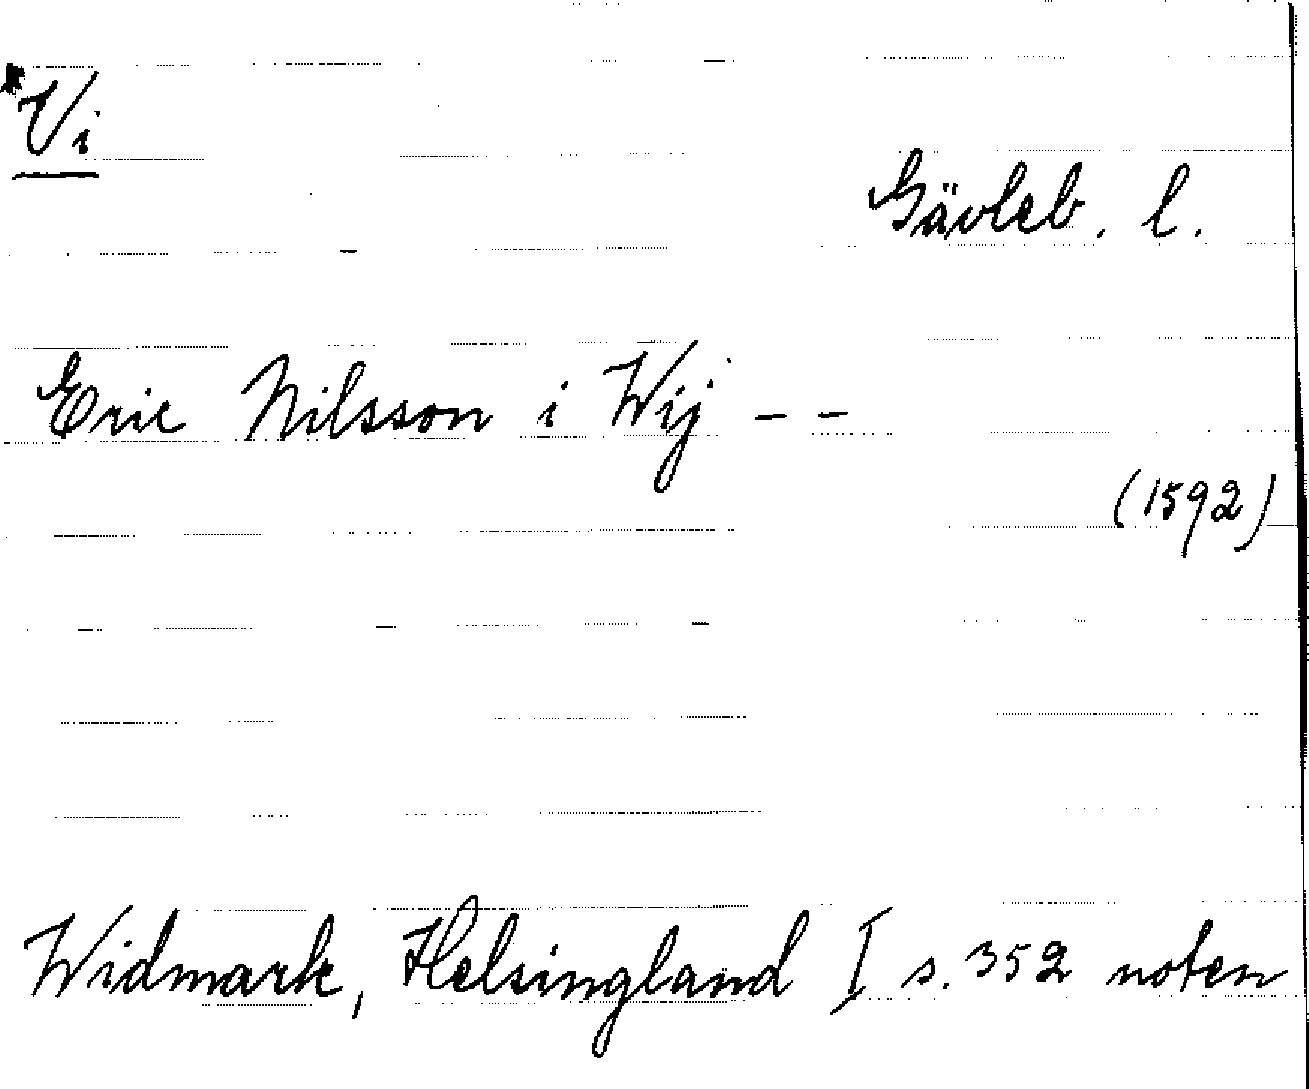 *Vi
Gävleb. l.
Eric Nilsson i Wij - -
(1592)
Widmark, Helsingland I s. 352 noten